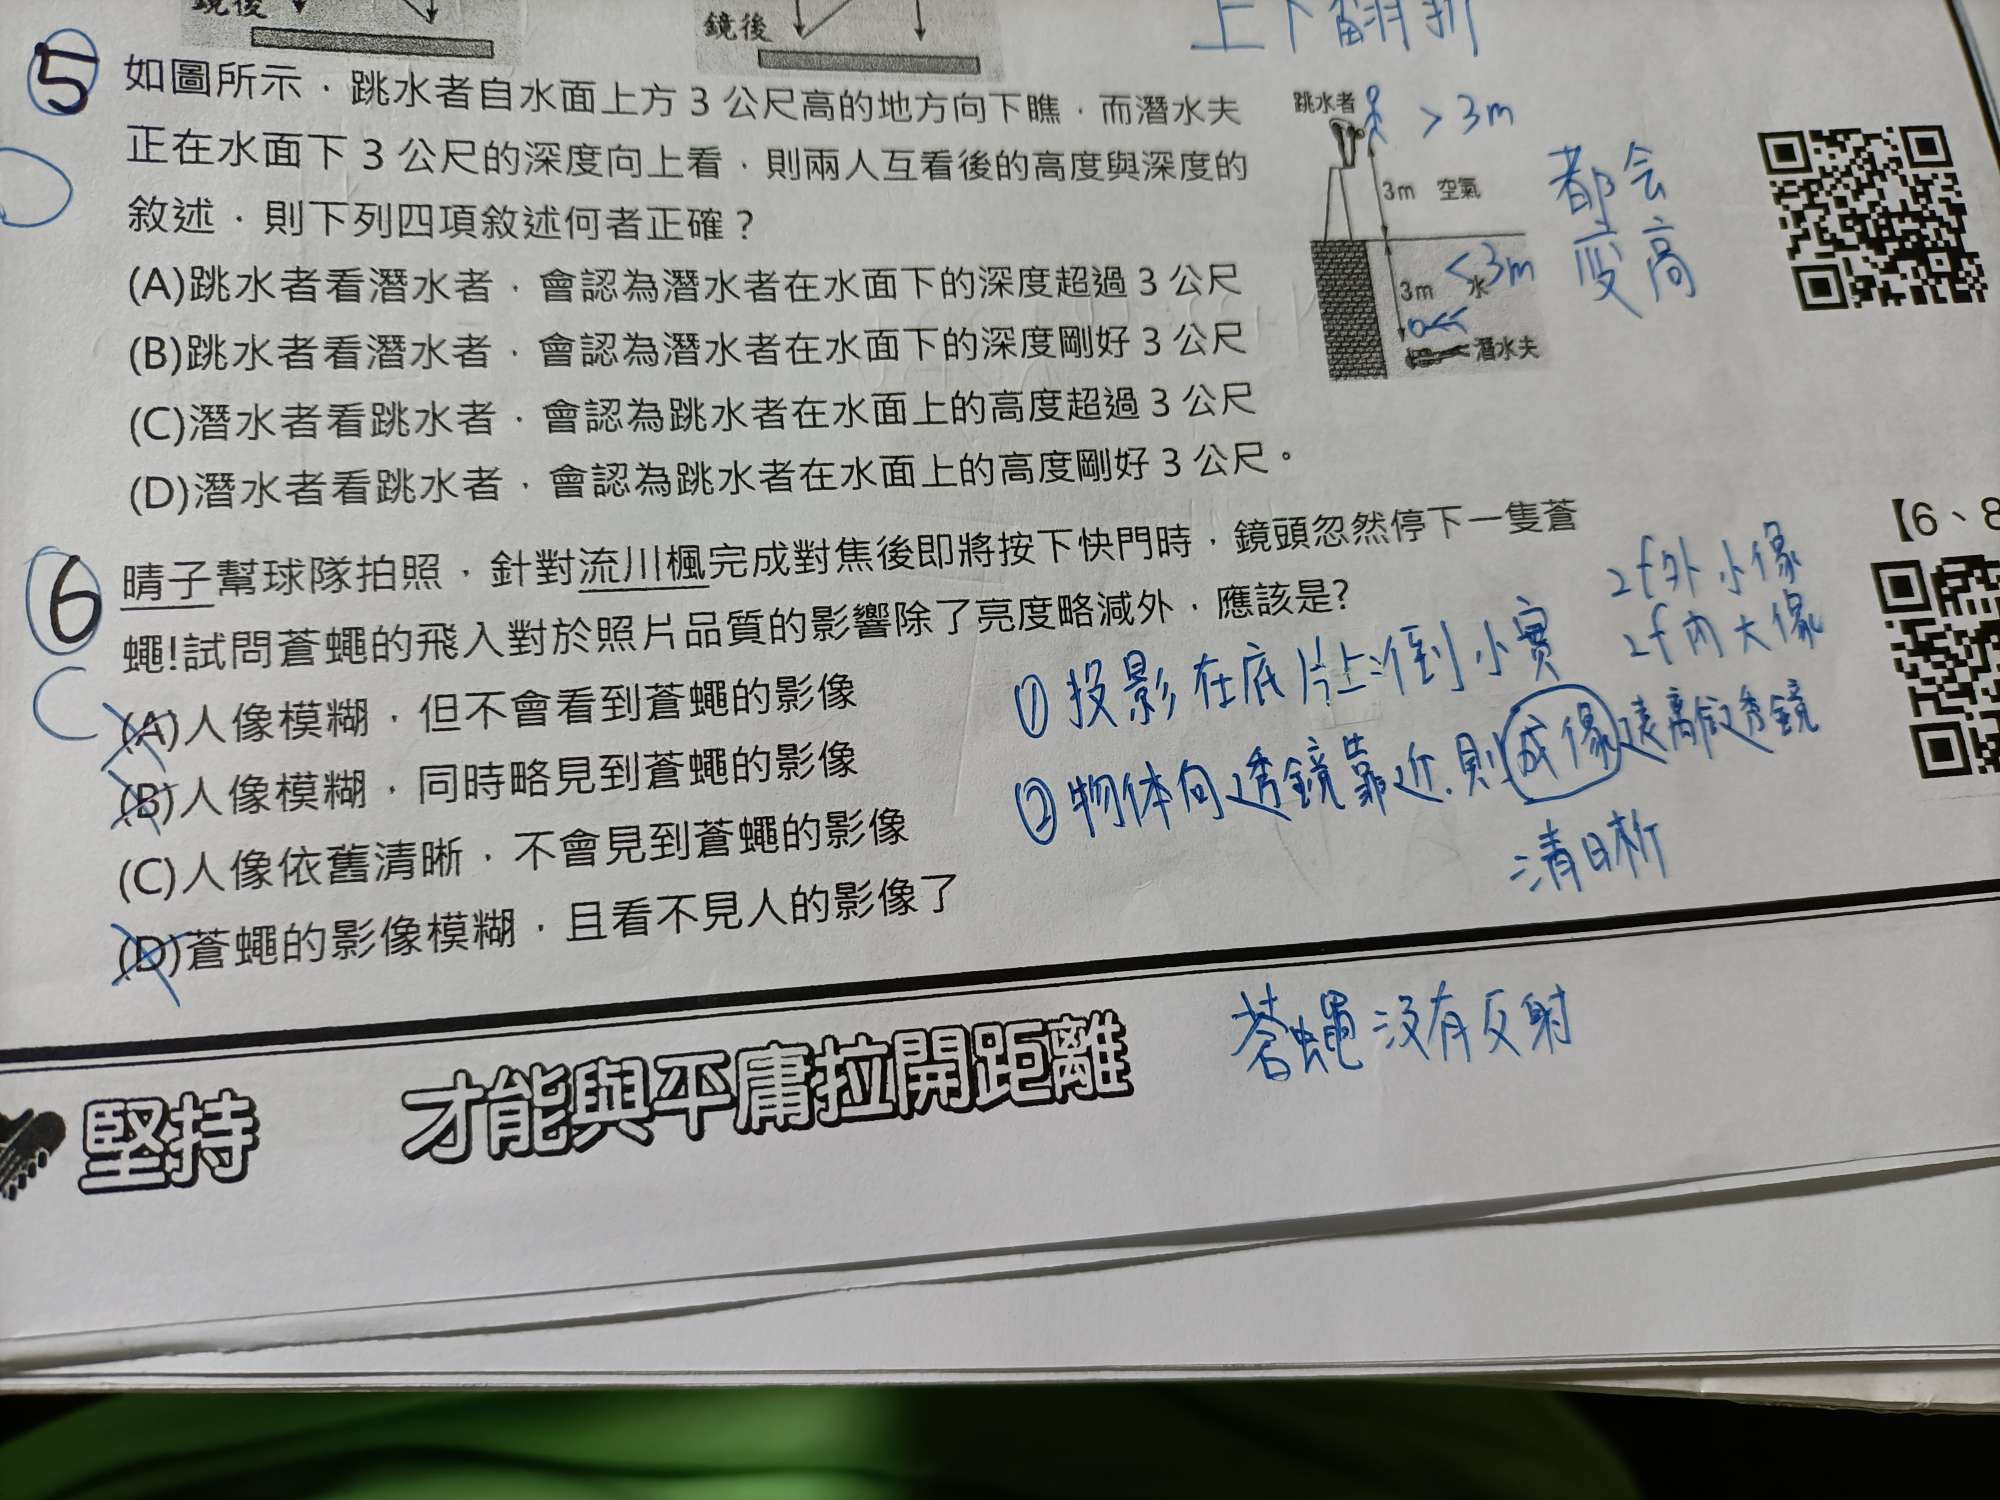 鏡後
鏡後
上下翻折
5 如圖所示，跳水者自水面上方3公尺高的地方向下瞧，而潛水夫
正在水面下3公尺的深度向上看，則兩人互看後的高度與深度的
敘述，則下列四項敘述何者正確？
(A)跳水者看潛水者，會認為潛水者在水面下的深度超過3公尺
(B)跳水者看潛水者，會認為潛水者在水面下的深度剛好3公尺
(C)潛水者看跳水者，會認為跳水者在水面上的高度超過3公尺
(D)潛水者看跳水者，會認為跳水者在水面上的高度剛好3公尺。
跳水者
>3m
3m 空氣
<3m
3m 水
潛水夫
都會
變高
【6、8
6 晴子幫球隊拍照，針對流川楓完成對焦後即將按下快門時，鏡頭忽然停下一隻蒼
蠅!試問蒼蠅的飛入對於照片品質的影響除了亮度略減外，應該是?
C
(A)人像模糊，但不會看到蒼蠅的影像
(B)人像模糊，同時略見到蒼蠅的影像
(C)人像依舊清晰，不會見到蒼蠅的影像
(D)蒼蠅的影像模糊，且看不見人的影像了
2f外小像
2f內大像
①投影在底片上:倒小實
②物体向透鏡靠近,則成像遠離透鏡
清晰
蒼蠅沒有反射
堅持 才能與平庸拉開距離